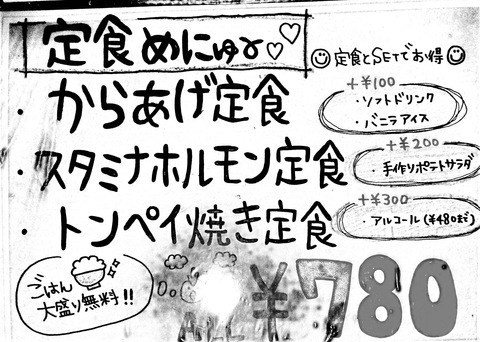 定食めにゅー♡♡
☺定食とSETでお得☺
・からあげ定食
・スタミナホルモン定食
・トンペイ焼き定食
+¥100
・ソフトドリンク
・バニラアイス
+¥200
・手作りポテトサラダ
+¥300
・アルコール(¥480まで)
ごはん
大盛り無料!!
ALL
¥780